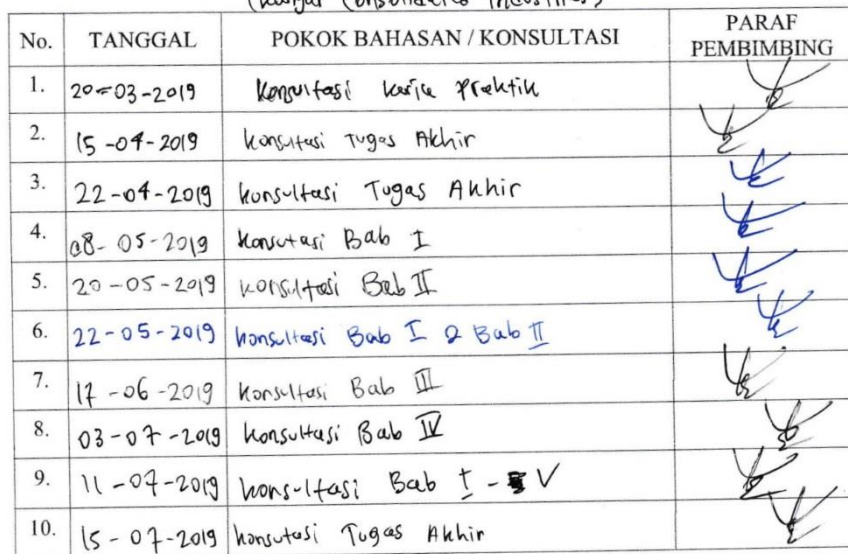 (Consolidated Industries)
No. TANGGAL POKOK BAHASAN / KONSULTASI PARAF PEMBIMBING
1. 20-03-2019 Konsultasi Kerja Praktik
2. 15-04-2019 Konsultasi Tugas Akhir
3. 22-04-2019 Konsultasi Tugas Akhir
4. 08-05-2019 Konsutasi Bab I
5. 20-05-2019 Konsultasi Bab II
6. 22-05-2019 Konsultasi Bab I & Bab II
7. 17-06-2019 Konsultasi Bab III
8. 03-07-2019 Konsultasi Bab IV
9. 11-07-2019 Konsultasi Bab I - V
10. 15-07-2019 Konsutasi Tugas Akhir